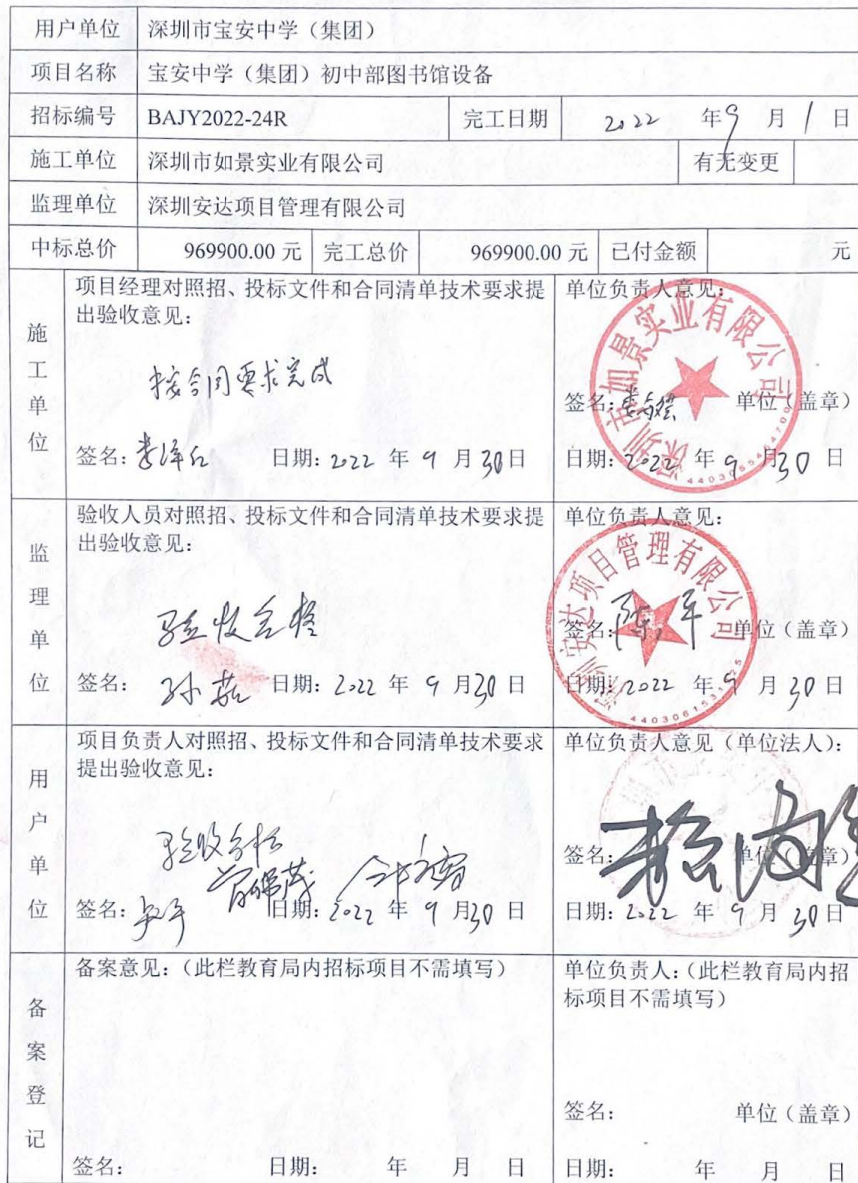 用户单位 深圳市宝安中学（集团）
项目名称 宝安中学（集团）初中部图书馆设备
招标编号 BAJY2022-24R 完工日期 2022 年 9 月 1 日
施工单位 深圳市如景实业有限公司 有无变更
监理单位 深圳安达项目管理有限公司
中标总价 969900.00 元 完工总价 969900.00 元 已付金额 元
施工单位
项目经理对照招、投标文件和合同清单技术要求提
出验收意见：
按合同要求完成
签名： 日期：2022 年 9 月 30 日
单位负责人意见：
签名： 单位（盖章）
日期：2022 年 9 月 30 日
深圳市如景实业有限公司
监理单位
验收人员对照招、投标文件和合同清单技术要求提
出验收意见：
验收合格
签名：孙茹 日期：2022 年 9 月 30 日
单位负责人意见：
签名：陈军 单位（盖章）
日期：2022 年 9 月 30 日
深圳安达项目管理有限公司
用户单位
项目负责人对照招、投标文件和合同清单技术要求
提出验收意见：
验收合格
签名： 日期：2022 年 9 月 30 日
单位负责人意见（单位法人）：
签名： 单位（盖章）
日期：2022 年 9 月 30 日
备案登记
备案意见：（此栏教育局内招标项目不需填写）
签名： 日期： 年 月 日
单位负责人：（此栏教育局内招
标项目不需填写）
签名： 单位（盖章）
日期： 年 月 日